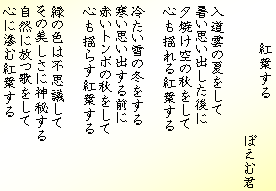 紅葉する
ぽえむ君
入道雲の夏をして
暑い思い出した後に
夕焼け空の秋をして
心も揺れる紅葉する
冷たい雪の冬をする
寒い思い出する前に
赤いトンボの秋をして
心も揺らす紅葉する
緑の色は不思議して
その美しさに神秘する
自然に放つ歌をして
心に滲む紅葉する